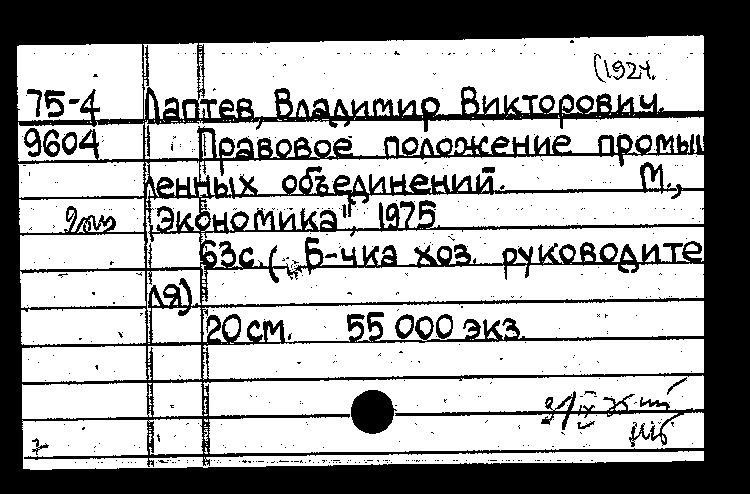 (1924.
75-4 Лаптев, Владимир Викторович.
9604 Правовое положение промыш
ленных объединений. М.,
"Экономика", 1975.
63с. ( Б-чка хоз. руководите
ля).
20 см. 55 000 экз.
7